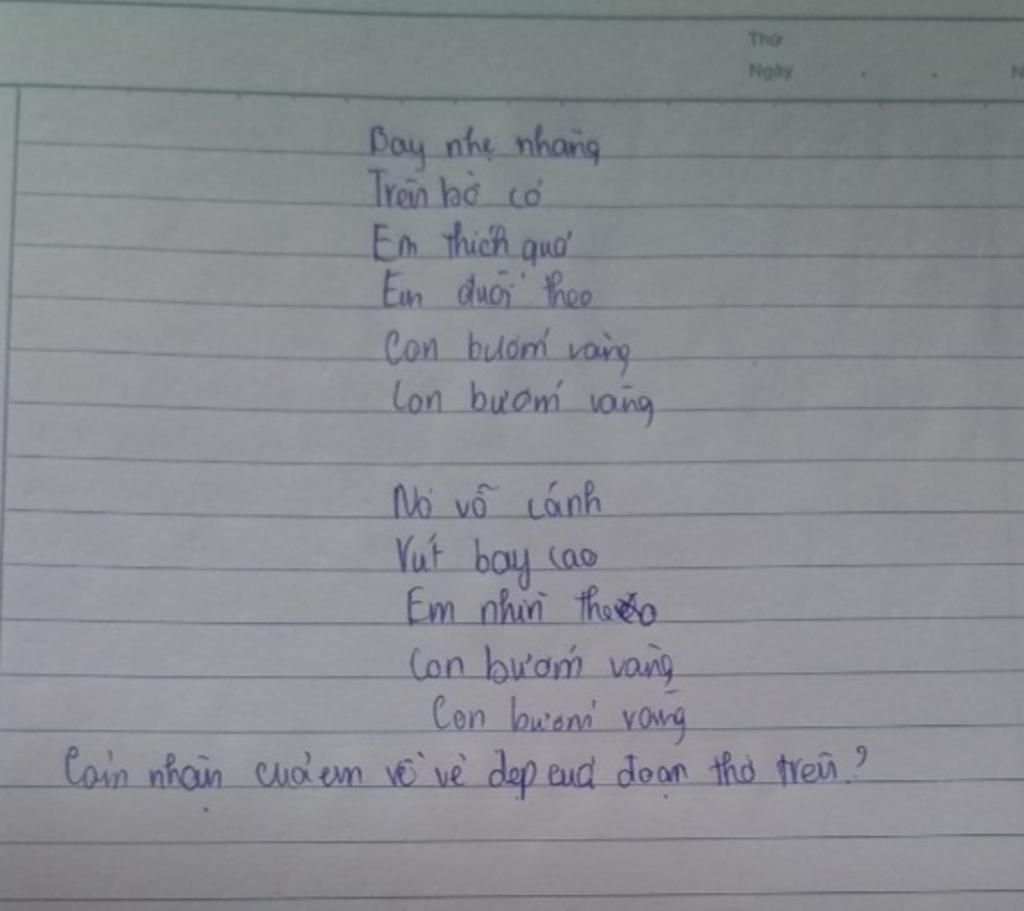 Thứ
Ngày
Bay nhẹ nhàng
Trên bờ cỏ
Em thích quá
Em đuổi theo
Con bướm vàng
Con bướm vàng
Nó vỗ cánh
Vút bay cao
Em nhìn theo
Con bướm vàng
Con bướm vàng
Cảm nhận của em về vẻ đẹp của đoạn thơ trên?